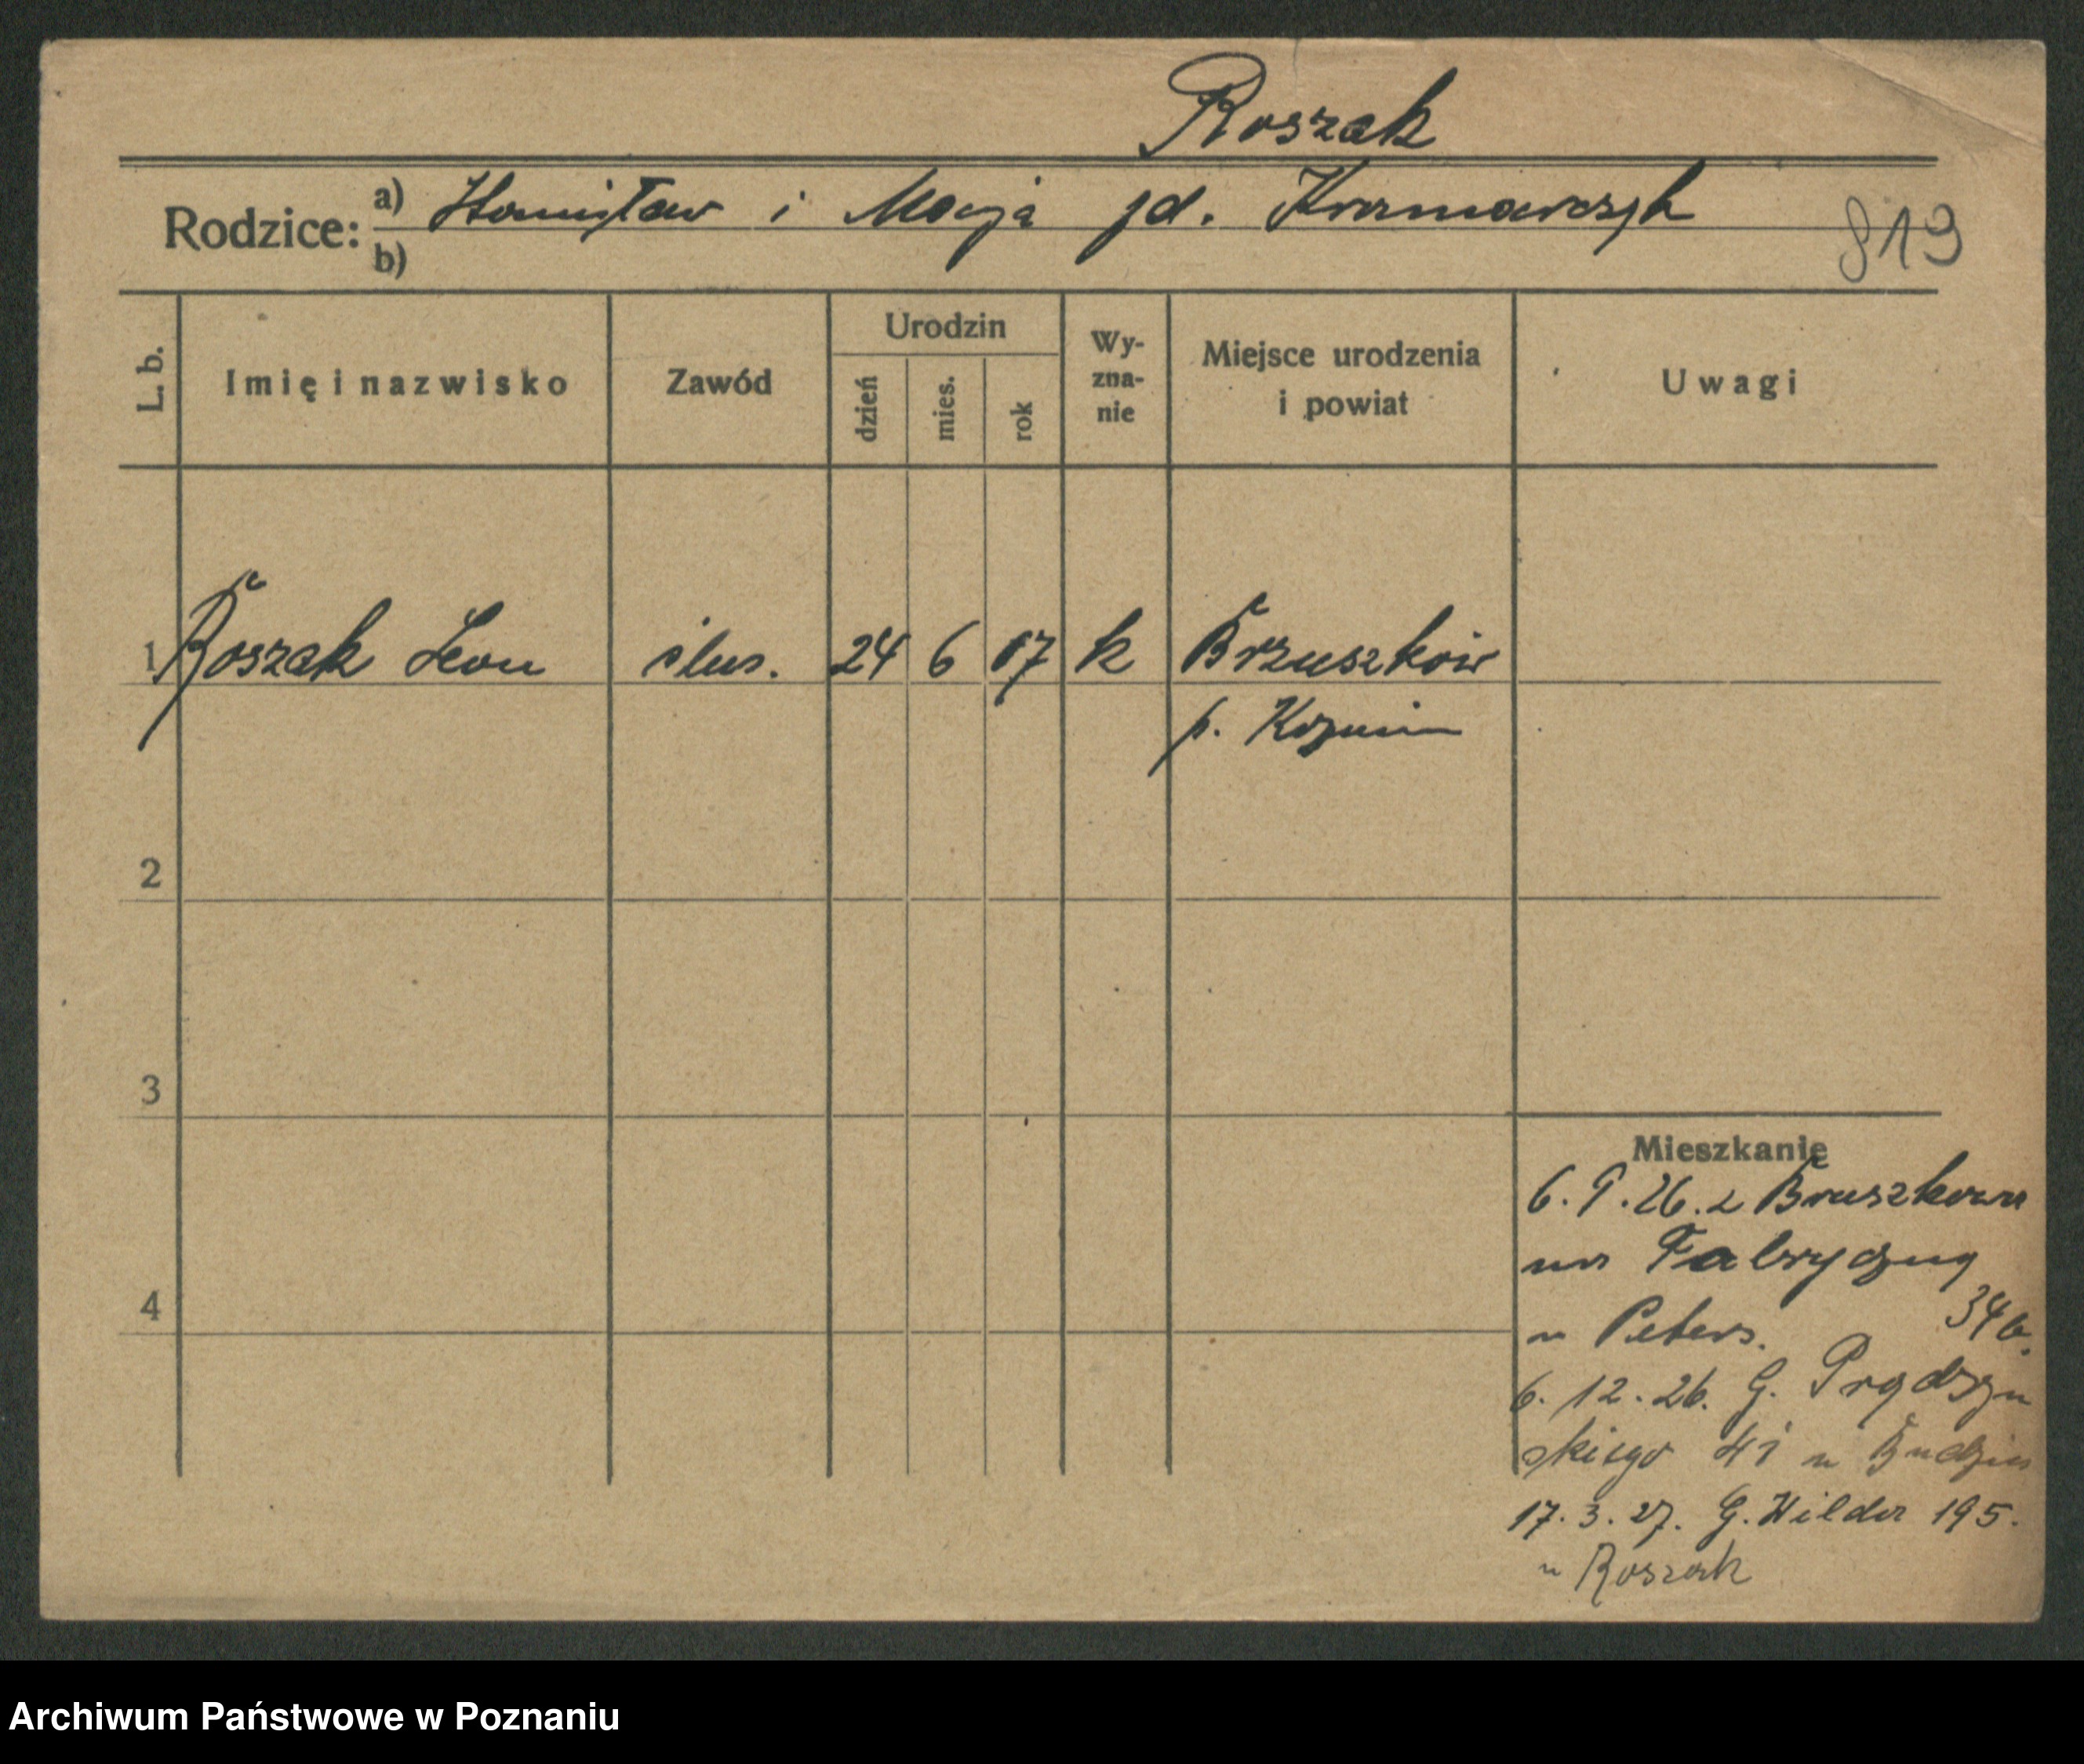 Roszak
Rodzice: a) Stanisław i Marja jd. Kramarczyk
b)
819
L. b.
Imię i nazwisko
Zawód
Urodzin
dzień
mies.
rok
Wy-
zna-
nie
Miejsce urodzenia
i powiat
Uwagi
1 Roszak Leon ślus. 24 6 07 k Bruszków
p. Koźmin
2
3
4
Mieszkanie
6. 9. 26. z Bruszkowa
na Fabryczną
34b.
u Peters.
6. 12. 26. G. Prądzyń
skiego 41 u
17. 3. 27. G. Wilda 195.
u Roszak
Archiwum Państwowe w Poznaniu